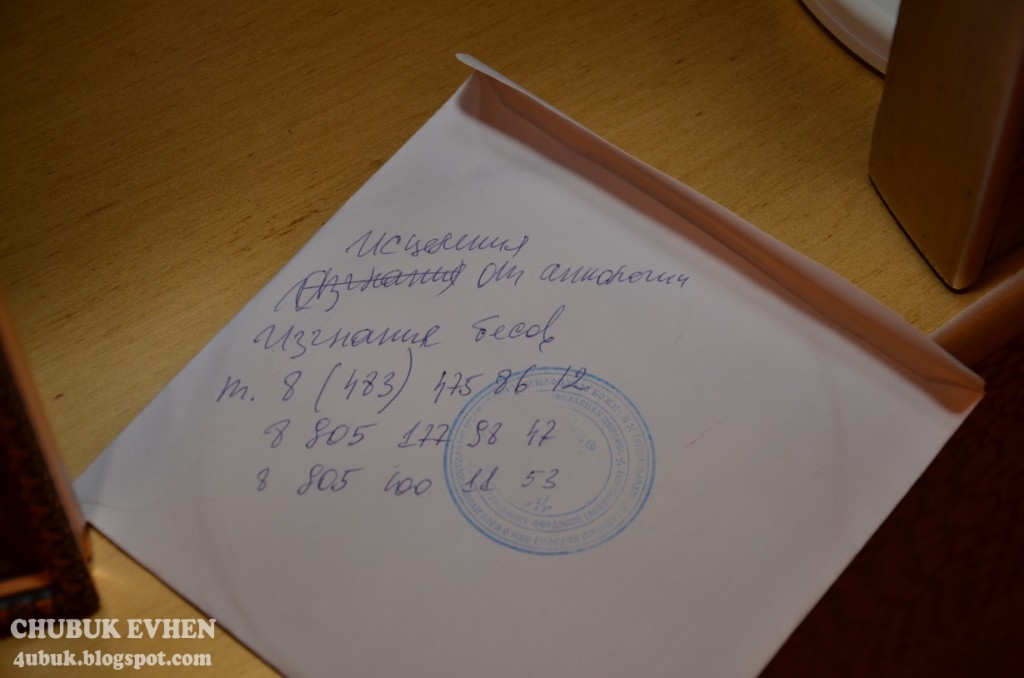 Исцеления
Изгнания от
Изгнание бесов
т. 8 (483) 475 86 12
8 905 177 98 47
8 905 100 11 53
CHUBUK EVHEN
4ubuk.blogspot.com